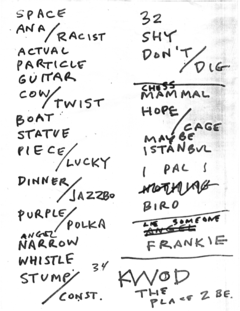 SPACE
ANA / RACIST
ACTUAL
PARTICLE
GUITAR
COW / TWIST
BOAT
STATUE
PIECE / LUCKY
DINNER / JAZZBO
PURPLE / POLKA
ANGEL
NARROW
WHISTLE
STUMP / CONST.
34
32
SHY
DON'T / DIG
CHESS
MAMMAL
HOPE / CAGE
MAYBE
ISTANBUL
I PAL I
NOTHING
BIRD
LIE SOMEONE
ANGEL
FRANKIE
KWOD
THE
PLACE 2 BE.